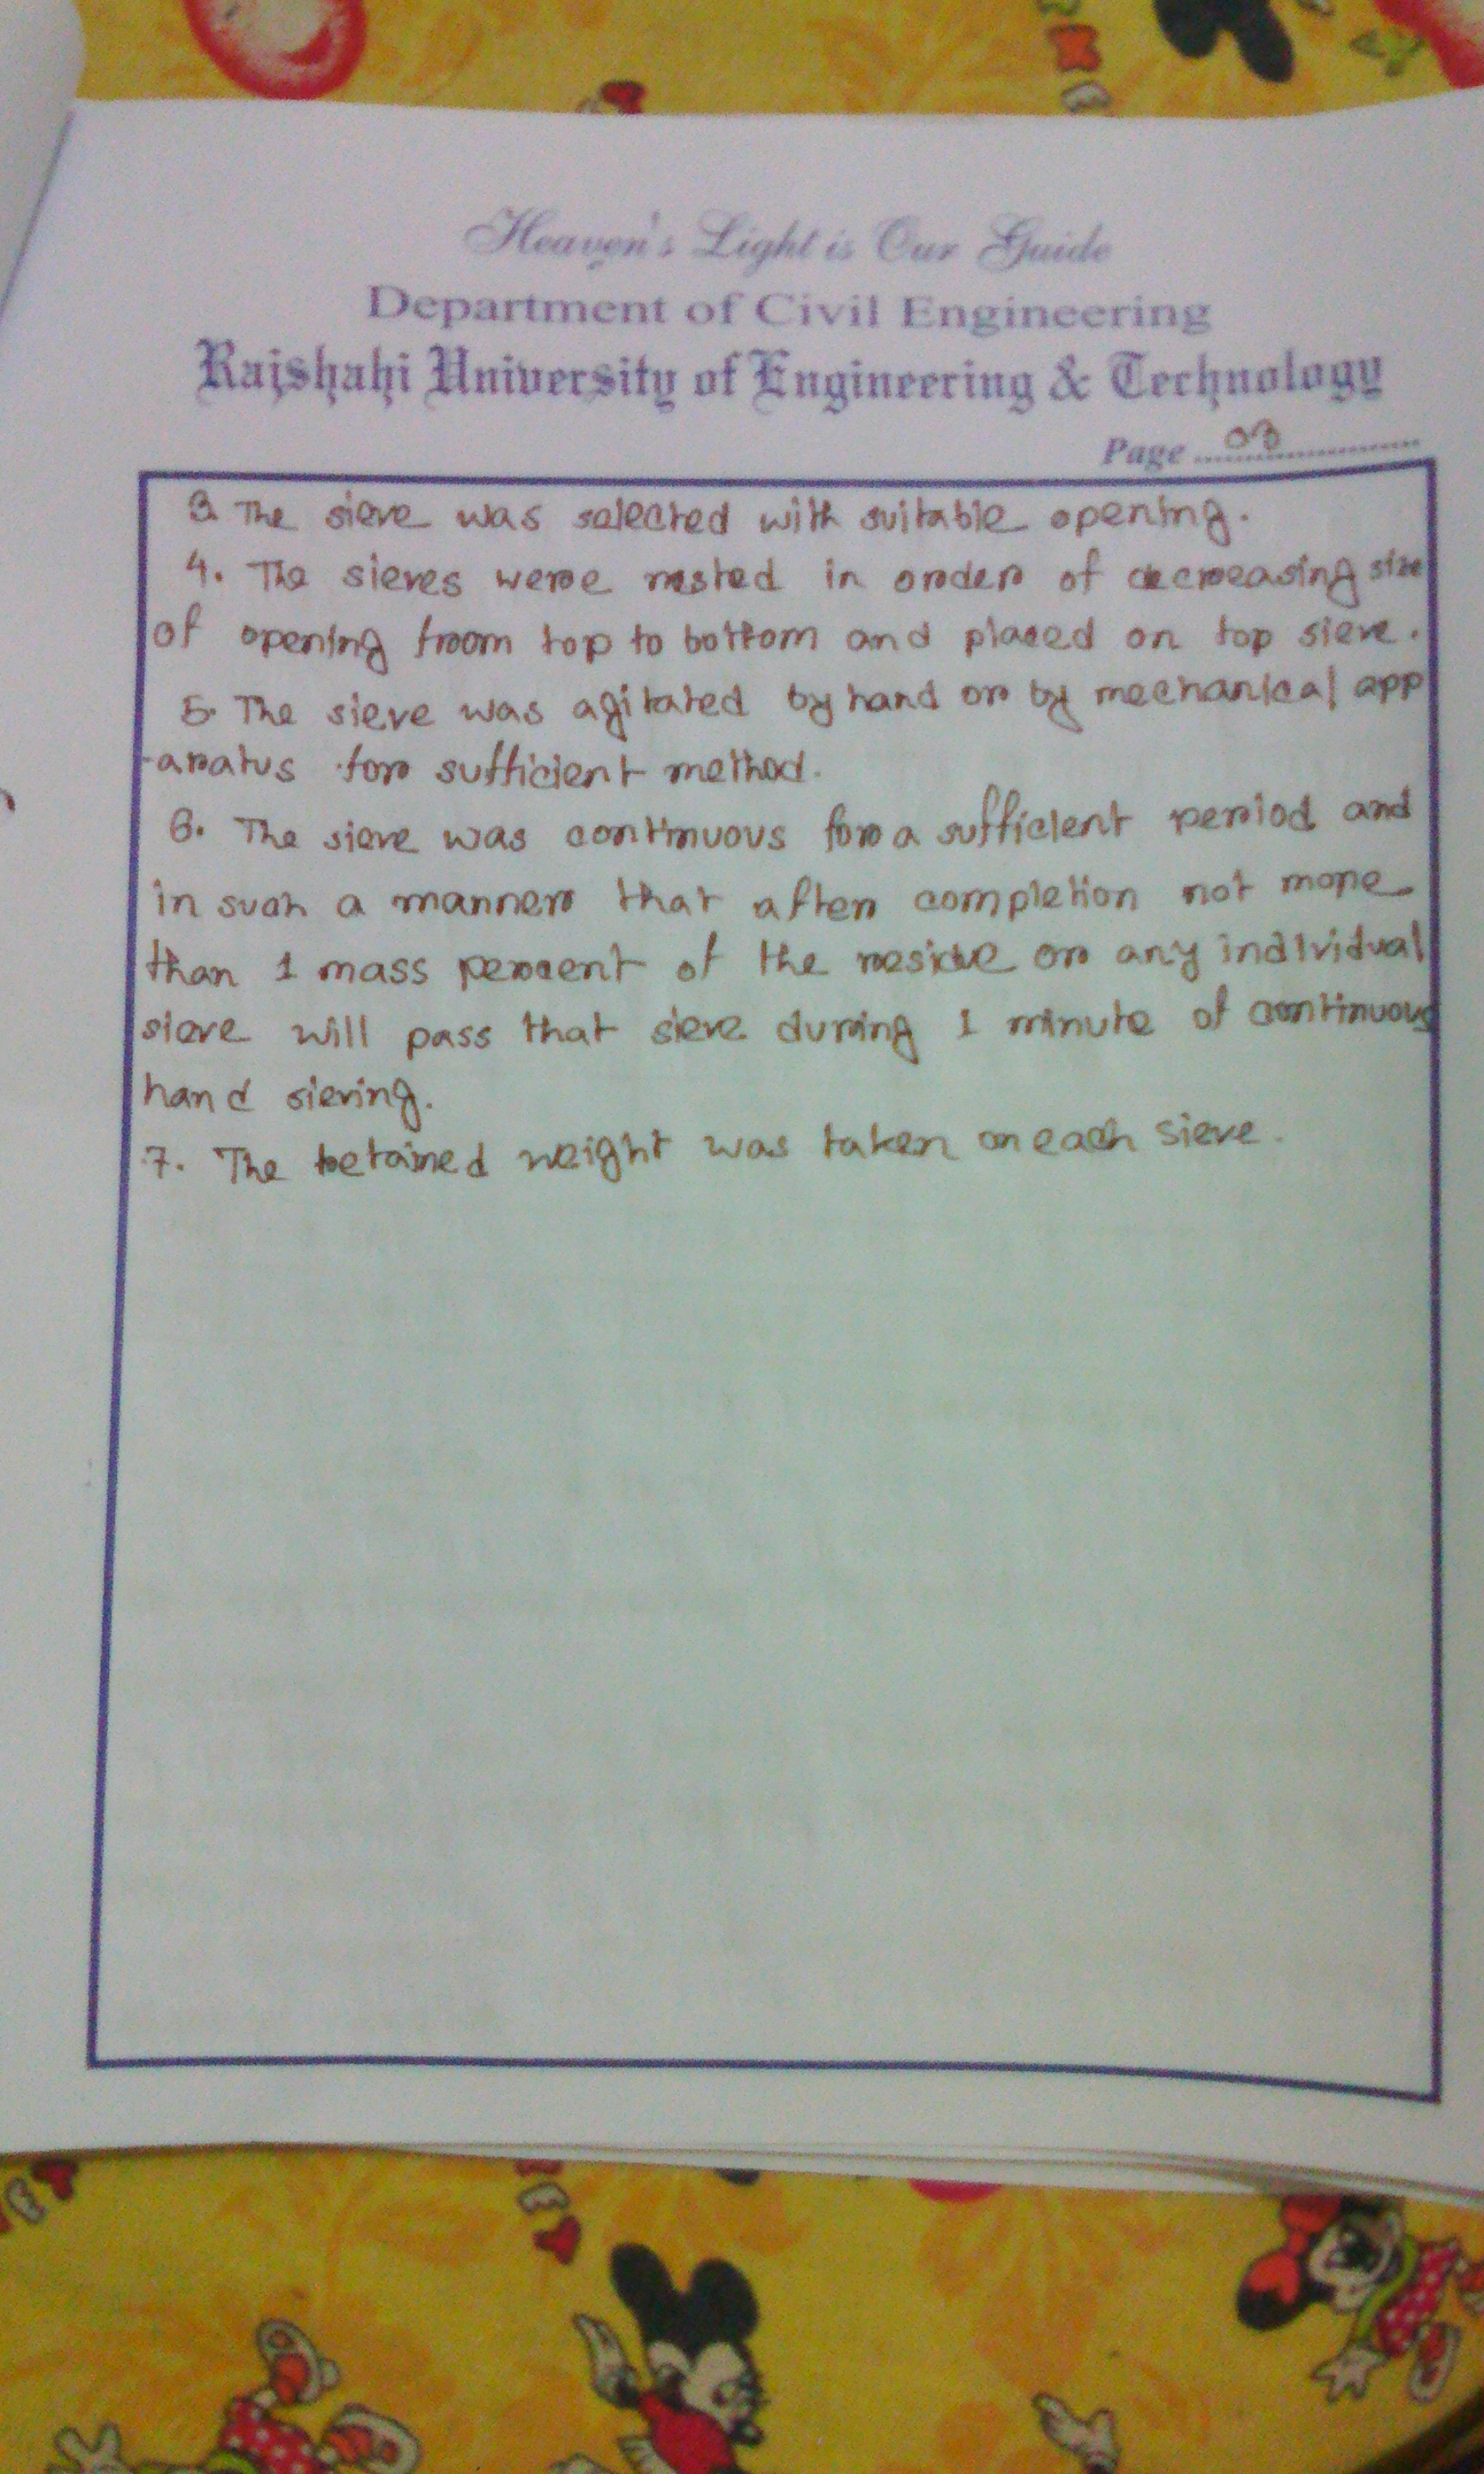 Heaven's Light is Our Guide
Department of Civil Engineering
Rajshahi University of Engineering & Technology
Page 03
3. The sieve was selected with suitable opening.
4. The sieves were nested in order of decreasing size
of opening from top to bottom and placed on top sieve.
5. The sieve was agitated by hand or by mechanical app
-aratus for sufficient method.
6. The sieve was continuous for a sufficient period and
in such a manner that after completion not more
than 1 mass percent of the residue on any individual
sieve will pass that sieve during 1 minute of continuous
hand sieving.
7. The retained weight was taken on each sieve.